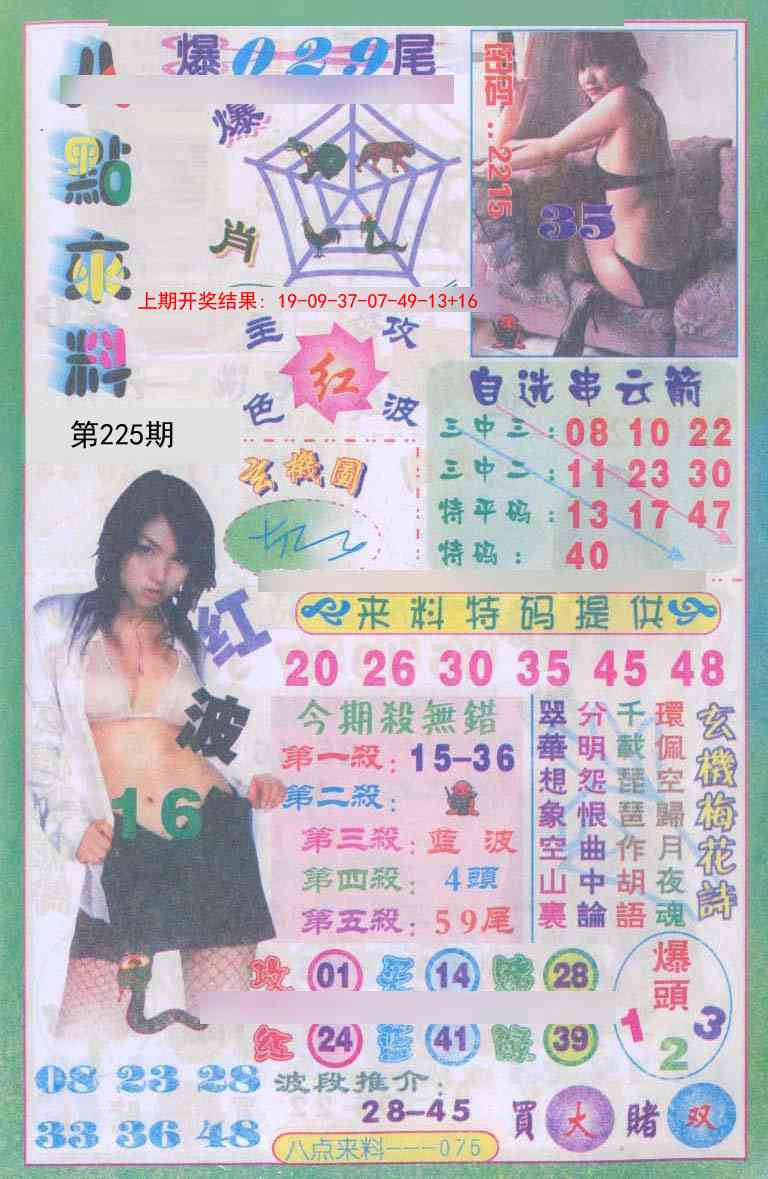 八點來料
爆029尾
爆肖
密码:2215
35
上期开奖结果: 19-09-37-07-49-13+16
主攻
红
色波
第225期
自选串云箭
三中三: 08 10 22
三中二: 11 23 30
特平码: 13 17 47
特码: 40
玄機圖
来料特码提供
20 26 30 35 45 48
红波
16
今期殺無錯
第一殺: 15-36
第二殺:
第三殺: 藍波
第四殺: 4頭
第五殺: 59尾
玄機梅花詩
環佩空歸月夜魂
千載琵琶作胡語
分明怨恨曲中論
翠華想象空山裏
攻 01 14 28
红 24 藍 41 綠 39
爆頭
1 2 3
08 23 28
33 36 48
波段推介:
28-45
買大賭双
八点来料---075